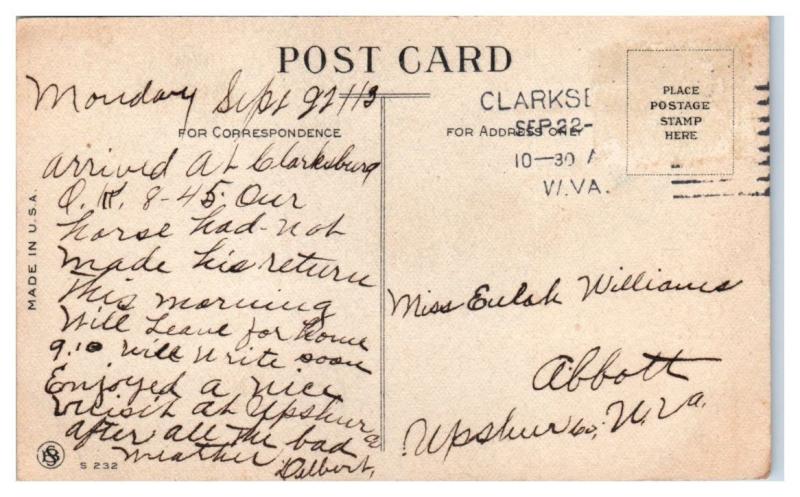 POST CARD
Monday Sept 22 113
FOR CORRESPONDENCE
arrived at Clarksburg
O.K. 8-45. Our
horse had not
made his return
this morning
Will Leave for home
9.10 will write soon
Enjoyed a nice
vicisit at Upshur
after all the bad
weather
Delbert,
MADE IN U.S.A.
S 232
CLARKSB
SEP 22-
10-30 A
W.VA.
FOR ADDRESS ONLY
PLACE
POSTAGE
STAMP
HERE
Miss Eulah Williams
Abbott
Upshur co, W.Va.